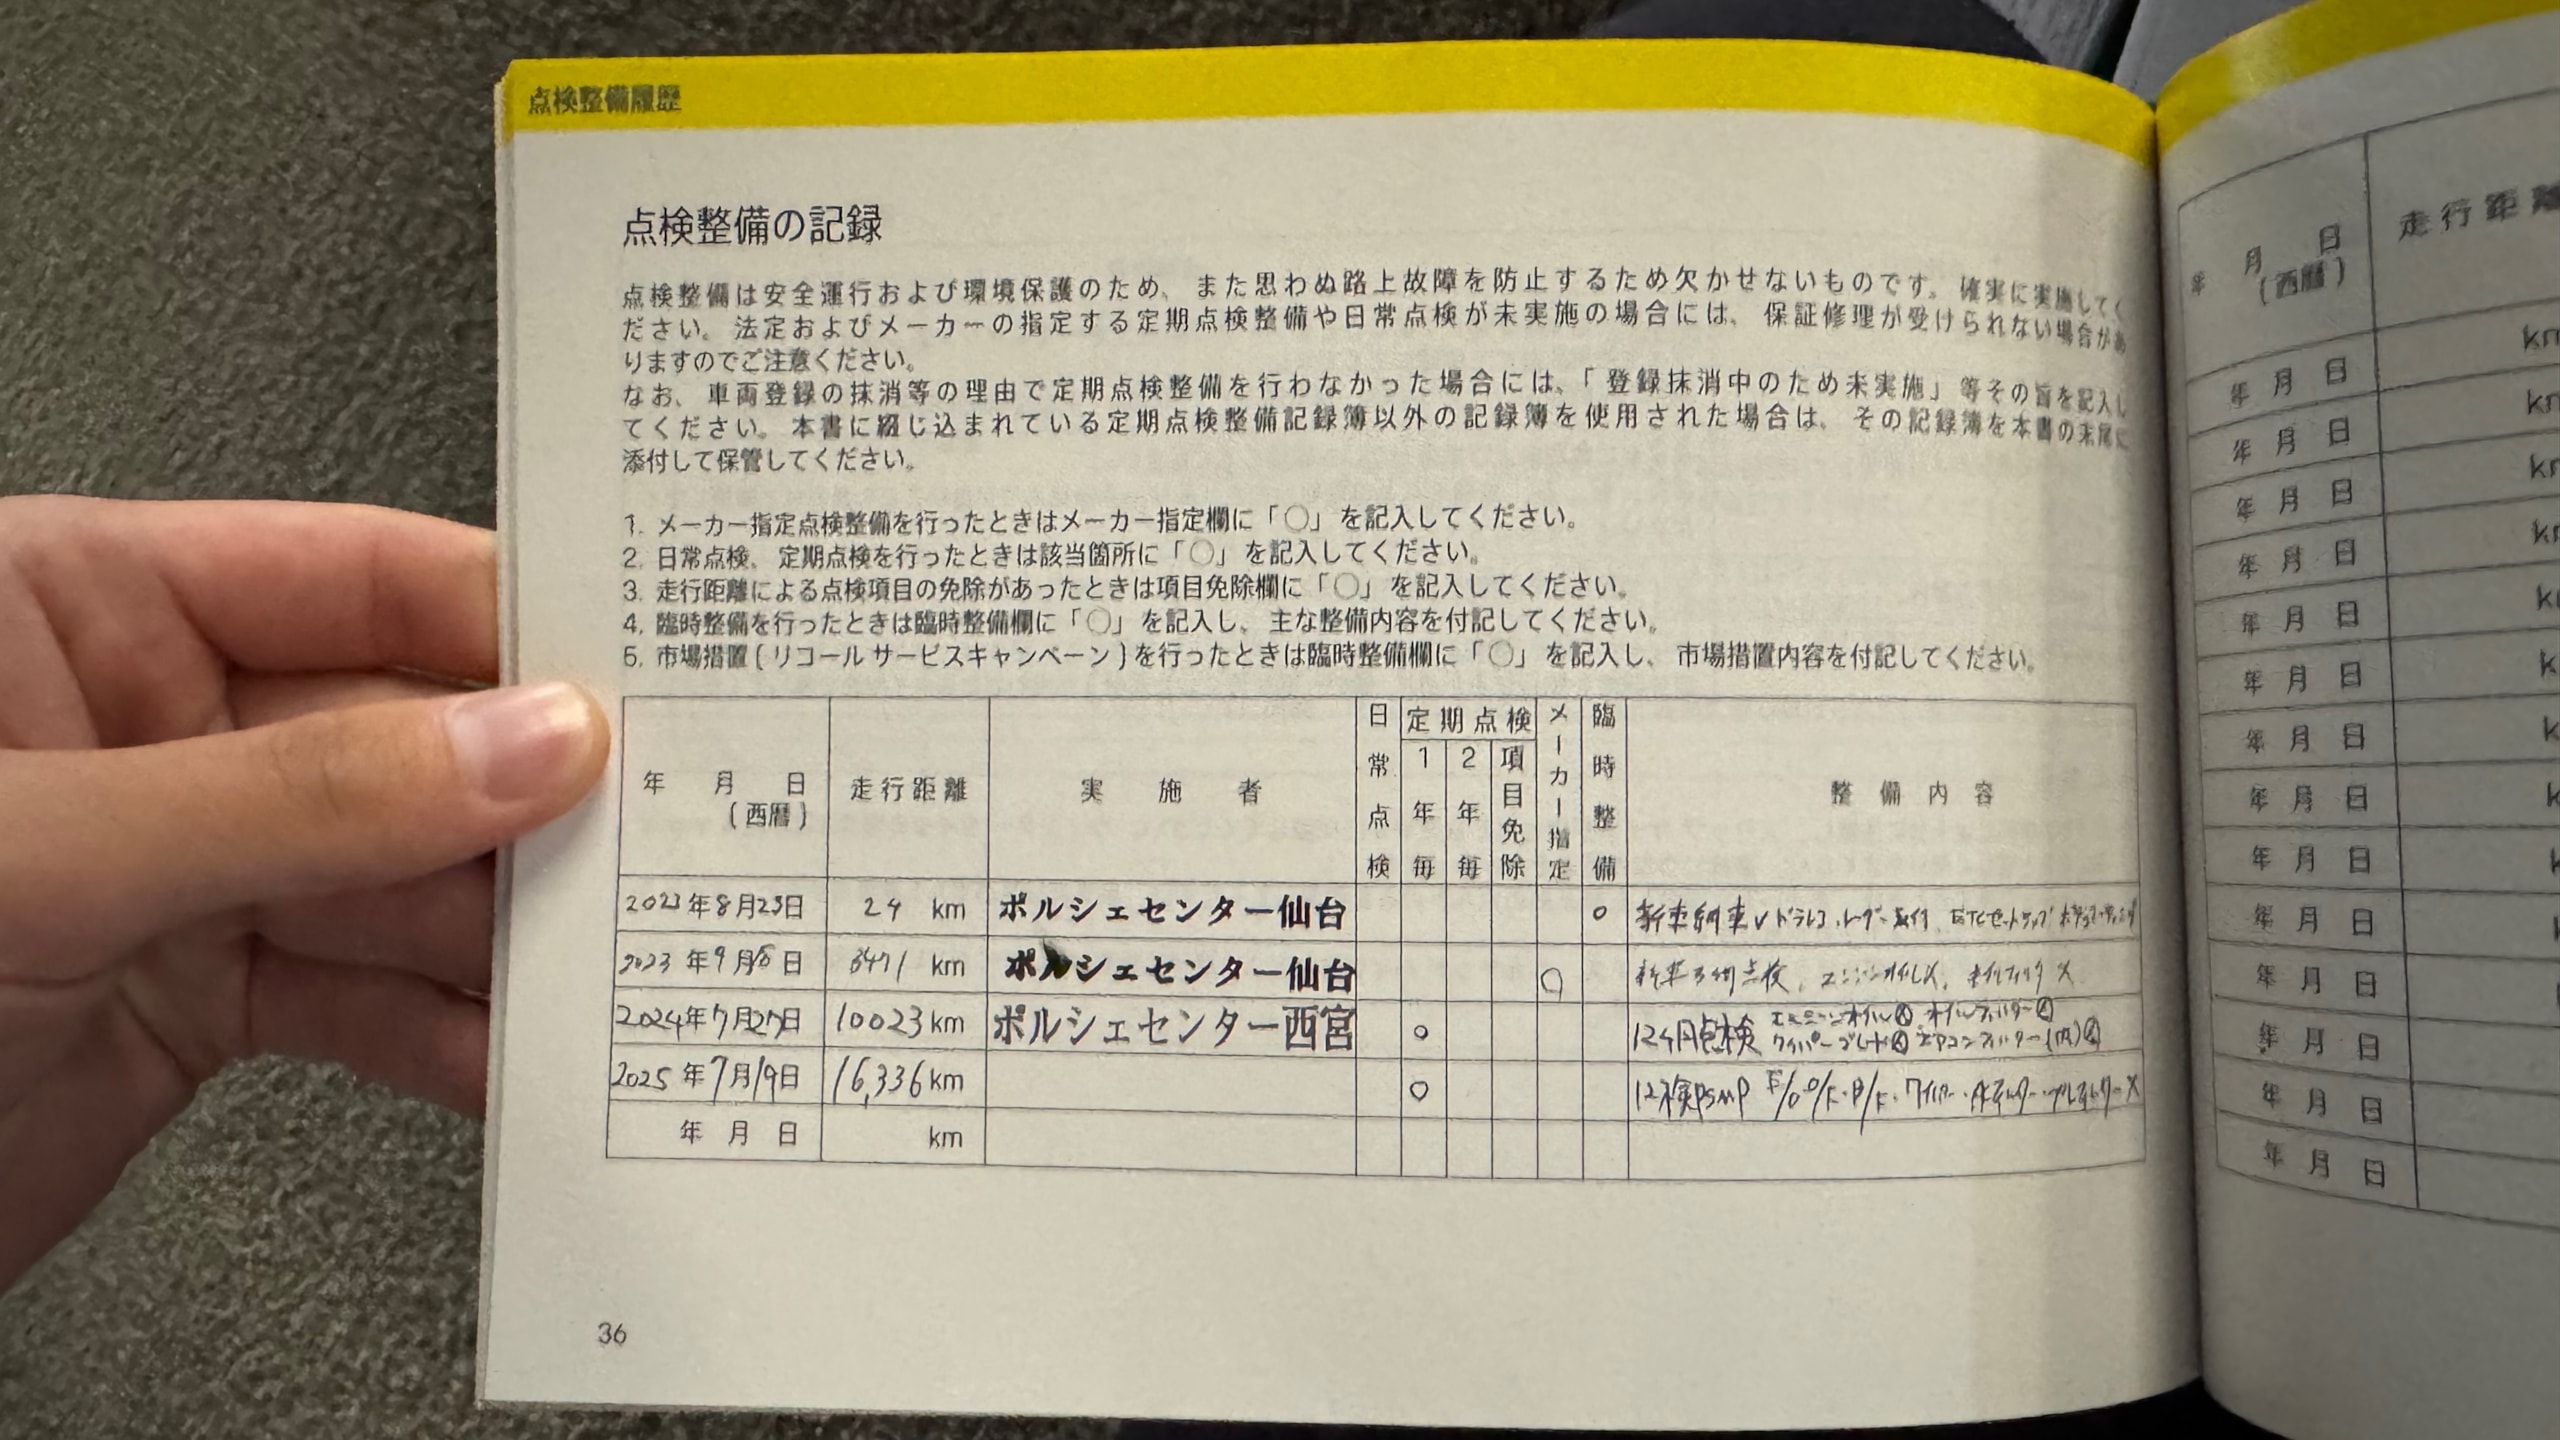 点検整備履歴
点検整備の記録
点検整備は安全運行および環境保護のため、また思わぬ路上故障を防止するため欠かせないものです。確実に実施してく
ださい。法定およびメーカーの指定する定期点検整備や日常点検が未実施の場合には、保証修理が受けられない場合があ
りますのでご注意ください。
なお、車両登録の抹消等の理由で定期点検整備を行わなかった場合には、「登録抹消中のため未実施」等その旨を記入し
てください。本書に綴じ込まれている定期点検整備記録簿以外の記録簿を使用された場合は、その記録簿を本書の末尾に
添付して保管してください。
1. メーカー指定点検整備を行ったときはメーカー指定欄に「○」を記入してください。
2. 日常点検、定期点検を行ったときは該当箇所に「○」を記入してください。
3. 走行距離による点検項目の免除があったときは項目免除欄に「○」を記入してください。
4. 臨時整備を行ったときは臨時整備欄に「○」を記入し、主な整備内容を付記してください。
5. 市場措置(リコール サービスキャンペーン)を行ったときは臨時整備欄に「○」を記入し、市場措置内容を付記してください。
年 月 日 (西暦) 走行距離 実施者 日常点検 定期点検 1年毎 2年毎 項目免除 メーカー指定 臨時整備 整備内容
2023年8月23日 24 km ポルシェセンター仙台 ○ 新車納車 ドラレコ レーダー取付 ETCセットアップ
2023年9月 日 km ポルシェセンター仙台 ○ 点検
2024年7月27日 10023km ポルシェセンター西宮 ○ 12ヶ月点検 エンジンオイル オイルフィルター
ワイパーブレード エアコンフィルター(内)
2025年7月19日 16,336km ○ 12検
年 月 日 km
36
年 月 日 (西暦) 走行距離
年 月 日 km
年 月 日 km
年 月 日
年 月 日
年 月 日
年 月 日
年 月 日
年 月 日
年 月 日
年 月 日
年 月 日
年 月 日
年 月 日
年 月 日